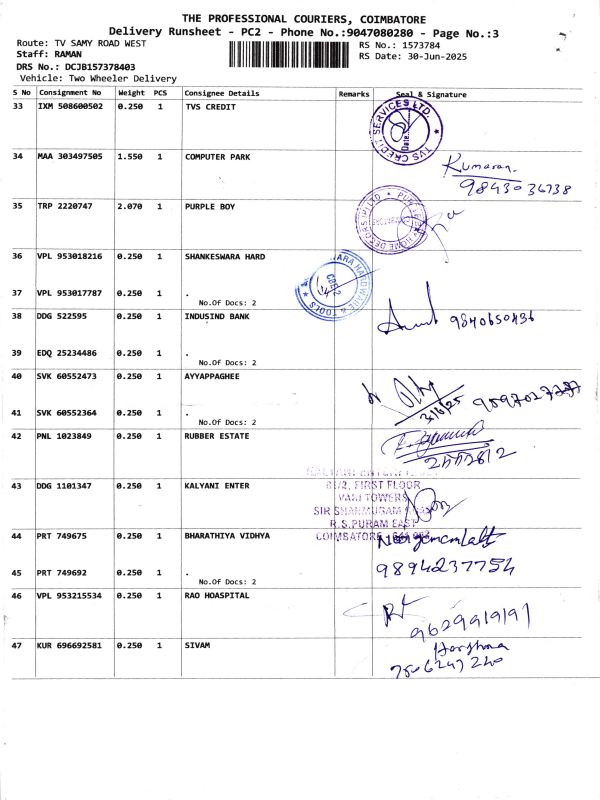 THE PROFESSIONAL COURIERS, COIMBATORE
Delivery Runsheet - PC2 - Phone No.:9047080280 - Page No.:3
Route: TV SAMY ROAD WEST
Staff: RAMAN
DRS No.: DCJB157378403
Vehicle: Two Wheeler Delivery
RS No.: 1573784
RS Date: 30-Jun-2025
S No Consignment No Weight PCS Consignee Details Remarks Seal & Signature
33 IXM 508600502 0.250 1 TVS CREDIT
TVS CREDIT SERVICES LTD.
Date
34 MAA 303497505 1.550 1 COMPUTER PARK
Kumaran
9843036738
35 TRP 2220747 2.070 1 PURPLE BOY
36 VPL 953018216 0.250 1 SHANKESWARA HARD
HARDWARE & TOOLS
CBE-2
37 VPL 953017787 0.250 1 .
No.Of Docs: 2
38 DDG 522595 0.250 1 INDUSIND BANK
9840650436
39 EDQ 25234486 0.250 1 .
No.Of Docs: 2
40 SVK 60552473 0.250 1 AYYAPPAGHEE
41 SVK 60552364 0.250 1 .
No.Of Docs: 2
42 PNL 1023849 0.250 1 RUBBER ESTATE
43 DDG 1101347 0.250 1 KALYANI ENTER
FIRST FLOOR
VANI TOWERS
SIR SHANMUGAM
R.S.PURAM EAST
COIMBATORE
44 PRT 749675 0.250 1 BHARATHIYA VIDHYA
9894237754
45 PRT 749692 0.250 1 .
No.Of Docs: 2
46 VPL 953215534 0.250 1 RAO HOASPITAL
9629919191
47 KUR 696692581 0.250 1 SIVAM